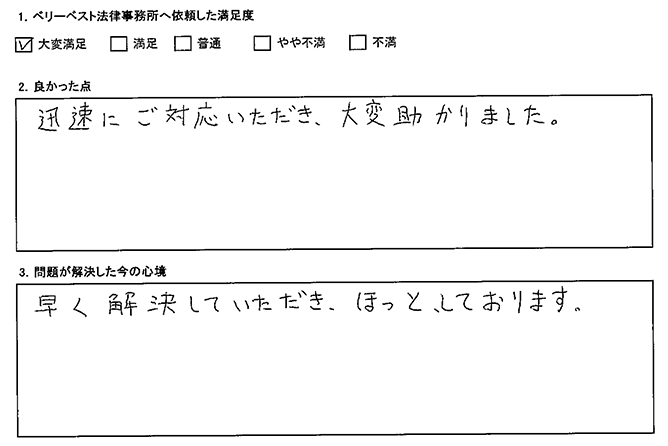 1. ベリーベスト法律事務所へ依頼した満足度
☑ 大変満足 ☐ 満足 ☐ 普通 ☐ やや不満 ☐ 不満
2. 良かった点
迅速に ご対応いただき、大変助かりました。
3. 問題が解決した今の心境
早く解決していただき、ほっと、しております。